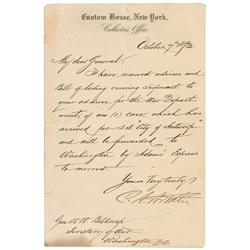 Custom House, New York,
Collectors Office,
October 7th 1873.
My dear General:
I have received advice and
Bill of lading covering shipment to
your address for the War Depart-
ments of one (1) case, which has
arrived per S.S. City of Antwerp
and will be forwarded to
Washington by Adams Express
to morrow.
Yours Very truly,
Gen W. W. Belknap
Secretary of War
Washington D.C.